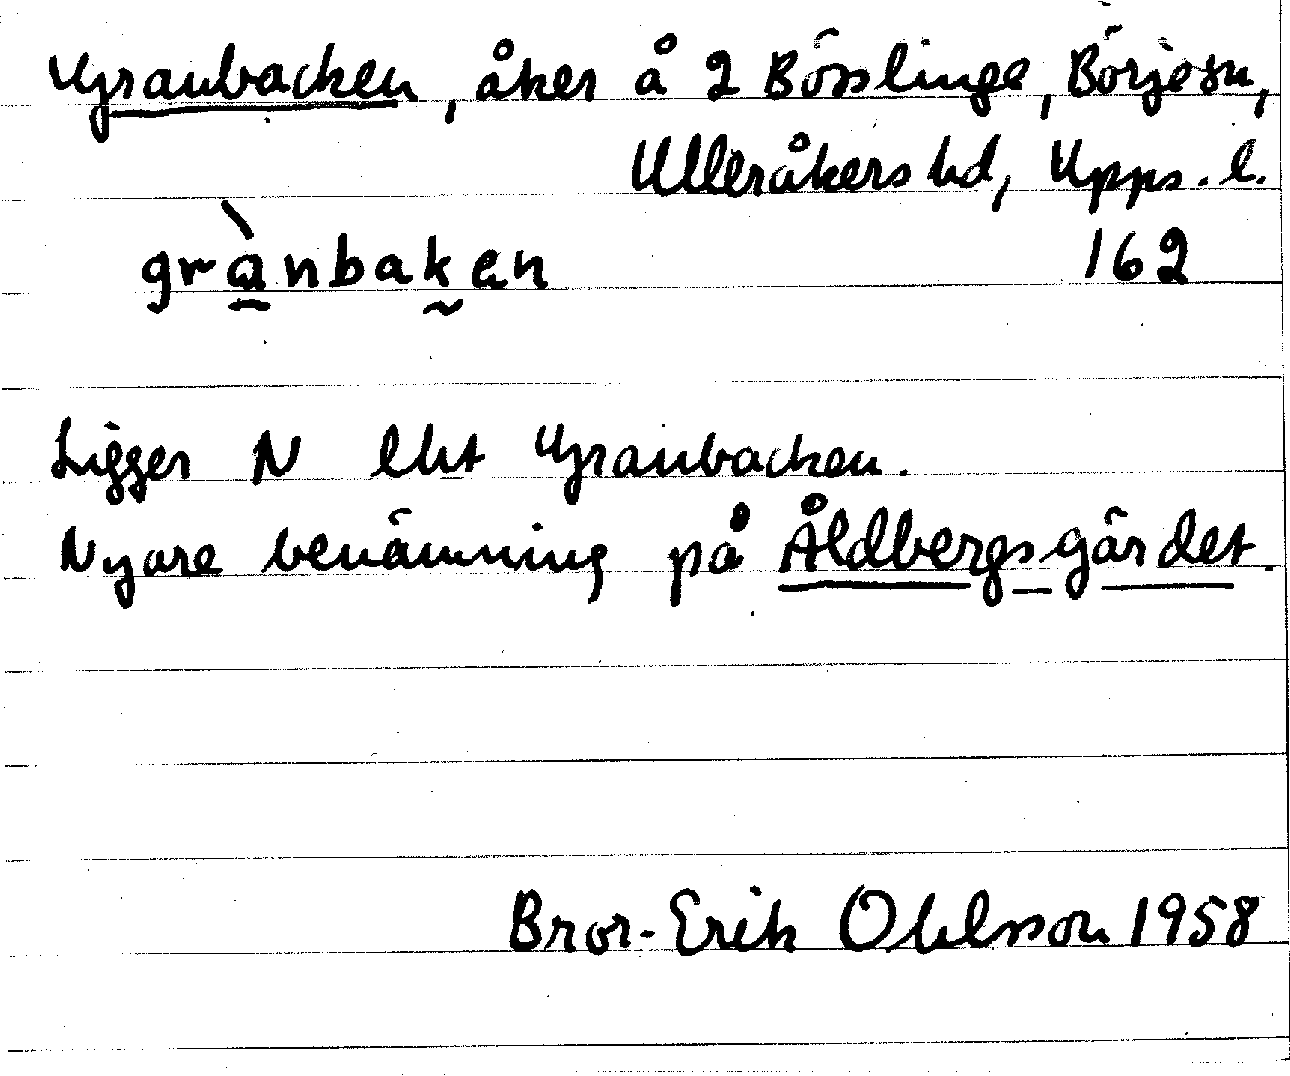 Granbacken, åker å 2 Bösslinge, Börje sn,
Ulleråkers hd, Upps. l.
grànbaken 162
Ligger N lht Granbacken.
Nyare benämning på Åldbergsgärdet.
Bror-Erik Ohlsson 1958